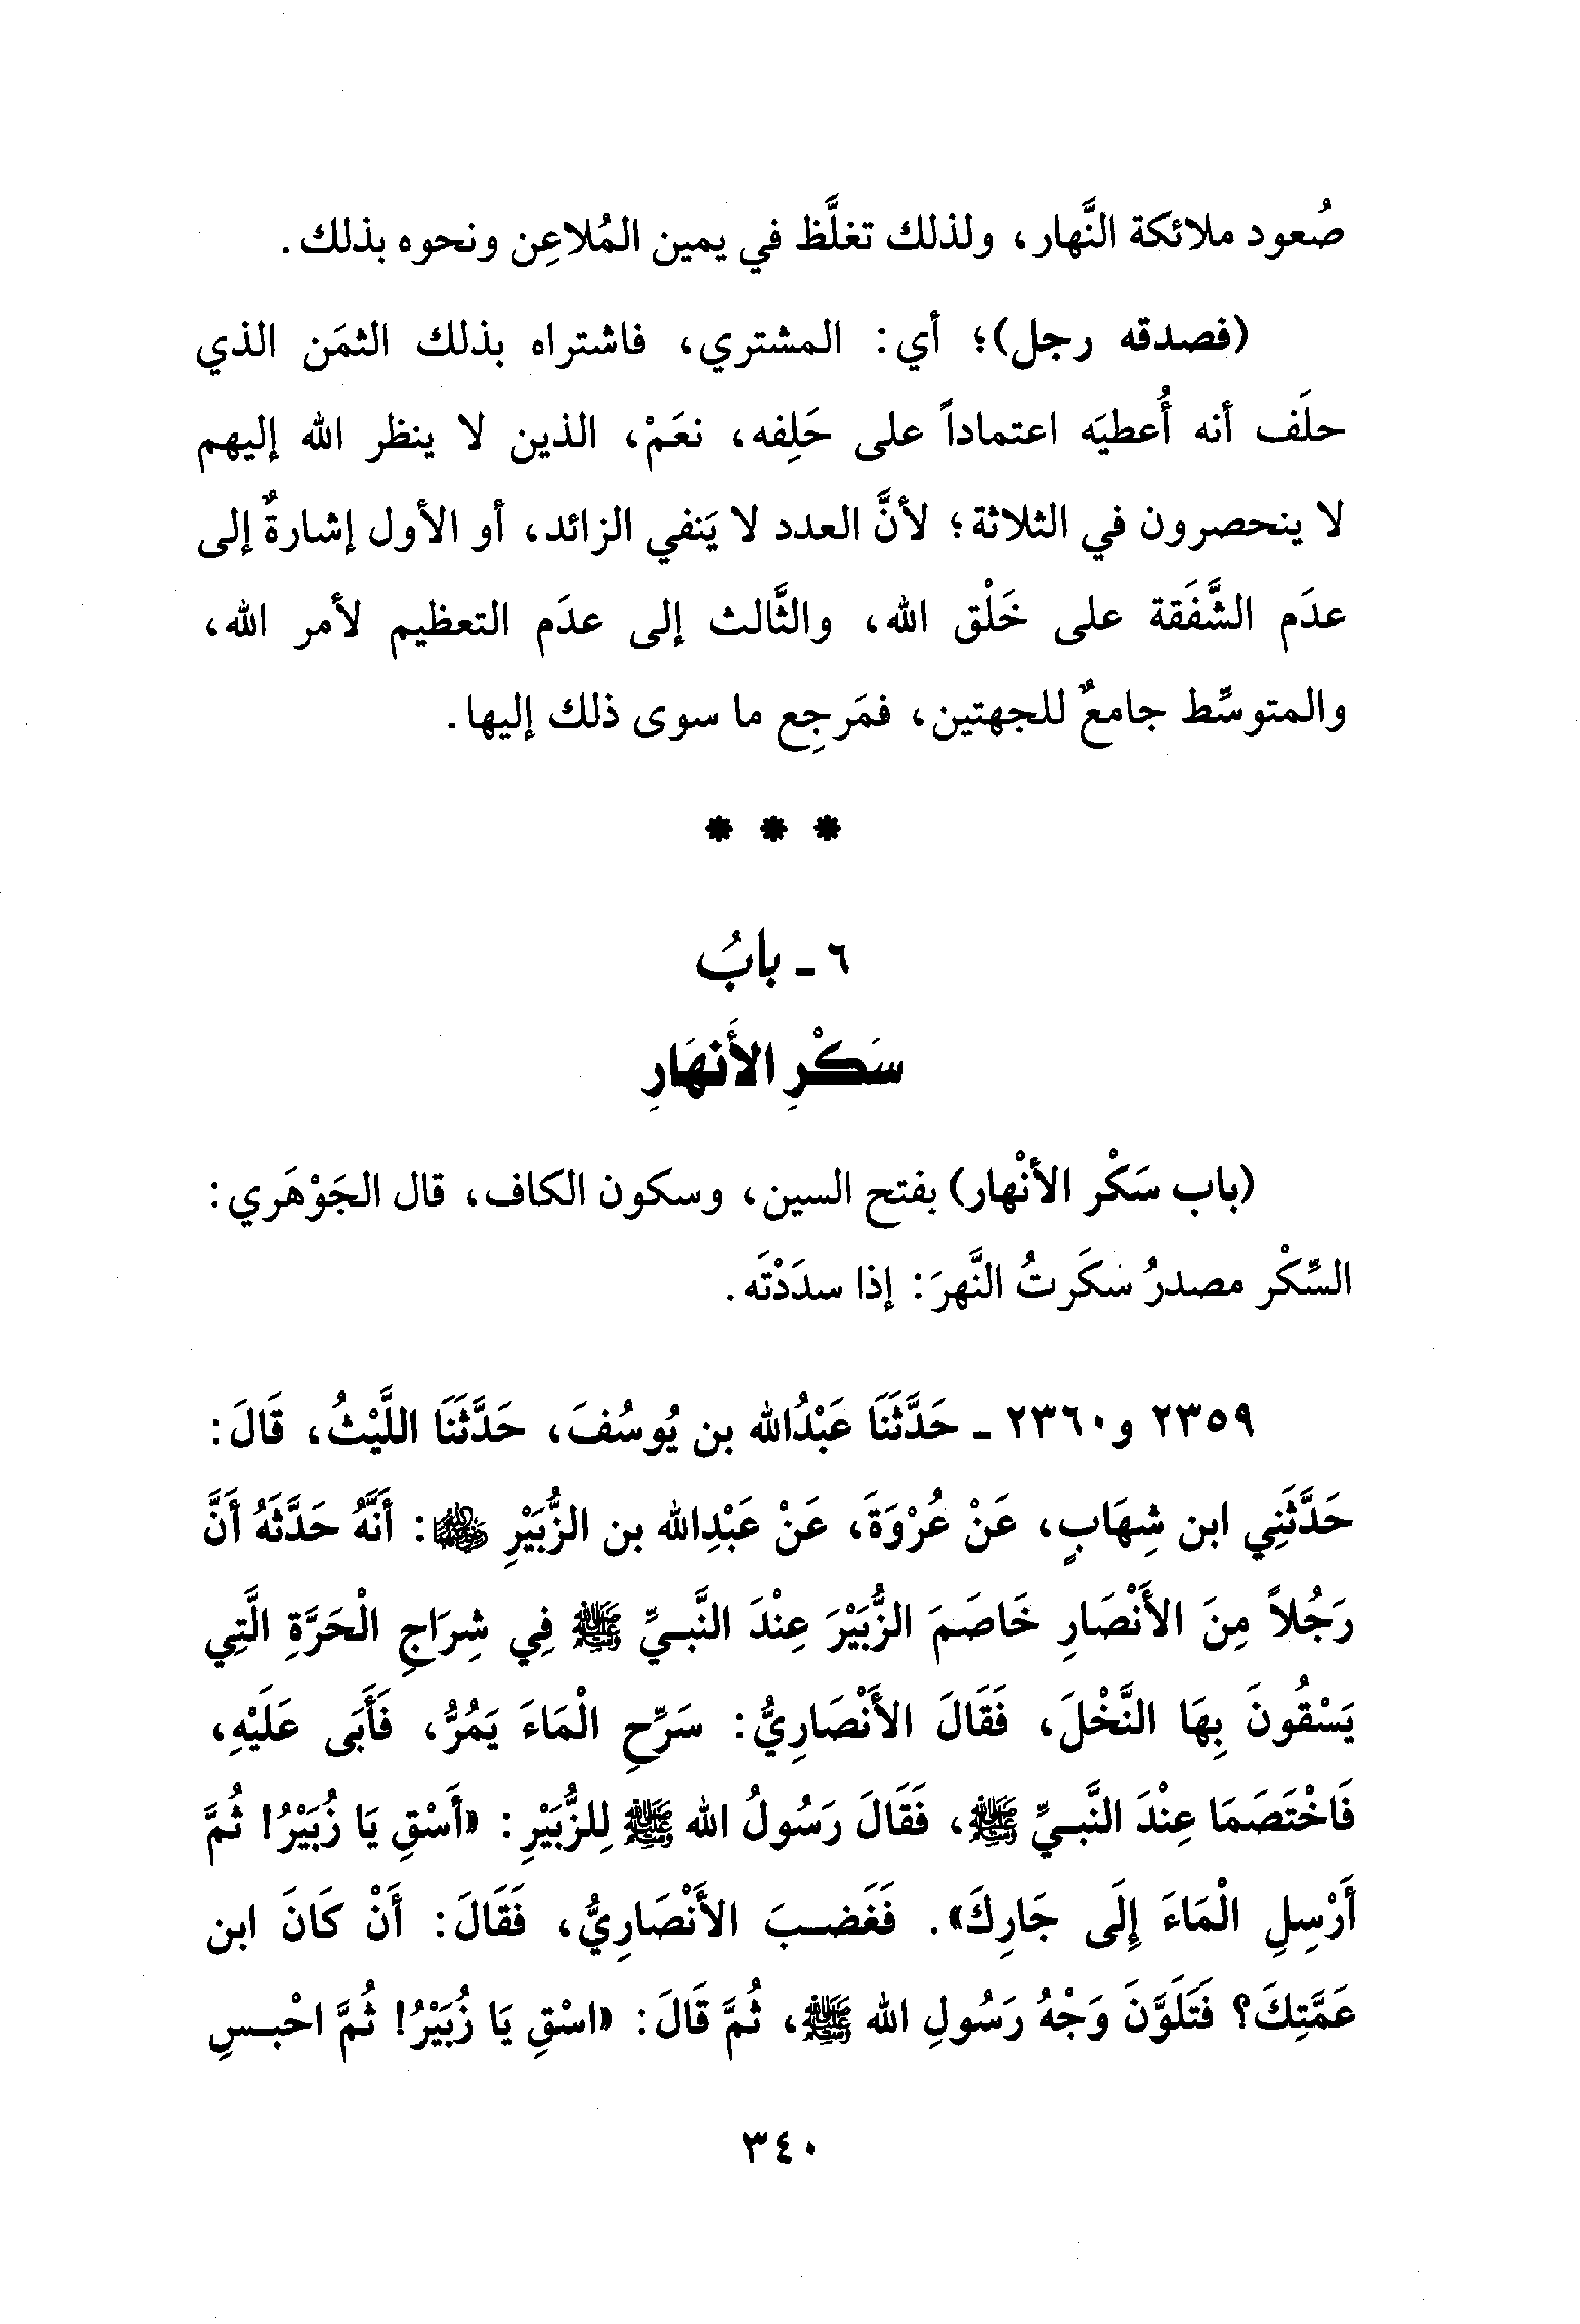 صُعود ملائكة النَّهار، ولذلك تغلَّظ في يمين المُلاعِن ونحوه بذلك.
(فصدقه رجل)؛ أي: المشتري، فاشتراه بذلك الثمَن الذي
حلَف أنه أُعطيَه اعتماداً على حَلِفه، نعَمْ، الذين لا ينظر الله إليهم
لا ينحصرون في الثلاثة؛ لأنَّ العدد لا يَنفي الزائد، أو الأول إشارةٌ إلى
عدَم الشَّفَقة على خَلْق الله، والثَّالث إلى عدَم التعظيم لأمر الله،
والمتوسِّط جامعٌ للجهتين، فمَرجِع ما سوى ذلك إليها.
* * *
٦ - بابُ
سَكْرِ الأَنهَارِ
(باب سَكْر الأنْهار) بفتح السين، وسكون الكاف، قال الجَوْهَري:
السِّكْر مصدرُ سَكَرتُ النَّهرَ: إذا سدَدْتَه.
٢٣٥٩ و٢٣٦٠ - حَدَّثَنَا عَبْدُالله بن يُوسُفَ، حَدَّثَنَا اللَّيْثُ، قَالَ:
حَدَّثَنِي ابن شِهَابٍ، عَنْ عُرْوَةَ، عَنْ عَبْدِالله بن الزُّبَيْرِ ﵁: أَنَّهُ حَدَّثَهُ أَنَّ
رَجُلاً مِنَ الأَنْصَارِ خَاصَمَ الزُّبَيْرَ عِنْدَ النَّبِيِّ ﷺ فِي شِرَاجِ الْحَرَّةِ الَّتِي
يَسْقُونَ بِهَا النَّخْلَ، فَقَالَ الأَنْصَارِيُّ: سَرِّحِ الْمَاءَ يَمُرُّ، فَأَبَى عَلَيْهِ،
فَاخْتَصَمَا عِنْدَ النَّبِيِّ ﷺ، فَقَالَ رَسُولُ الله ﷺ لِلزُّبَيْرِ: «أَسْقِ يَا زُبَيْرُ! ثُمَّ
أَرْسِلِ الْمَاءَ إِلَى جَارِكَ». فَغَضِبَ الأَنْصَارِيُّ، فَقَالَ: أَنْ كَانَ ابن
عَمَّتِكَ؟ فَتَلَوَّنَ وَجْهُ رَسُولِ الله ﷺ، ثُمَّ قَالَ: «اسْقِ يَا زُبَيْرُ! ثُمَّ احْبِسِ
٣٤٠